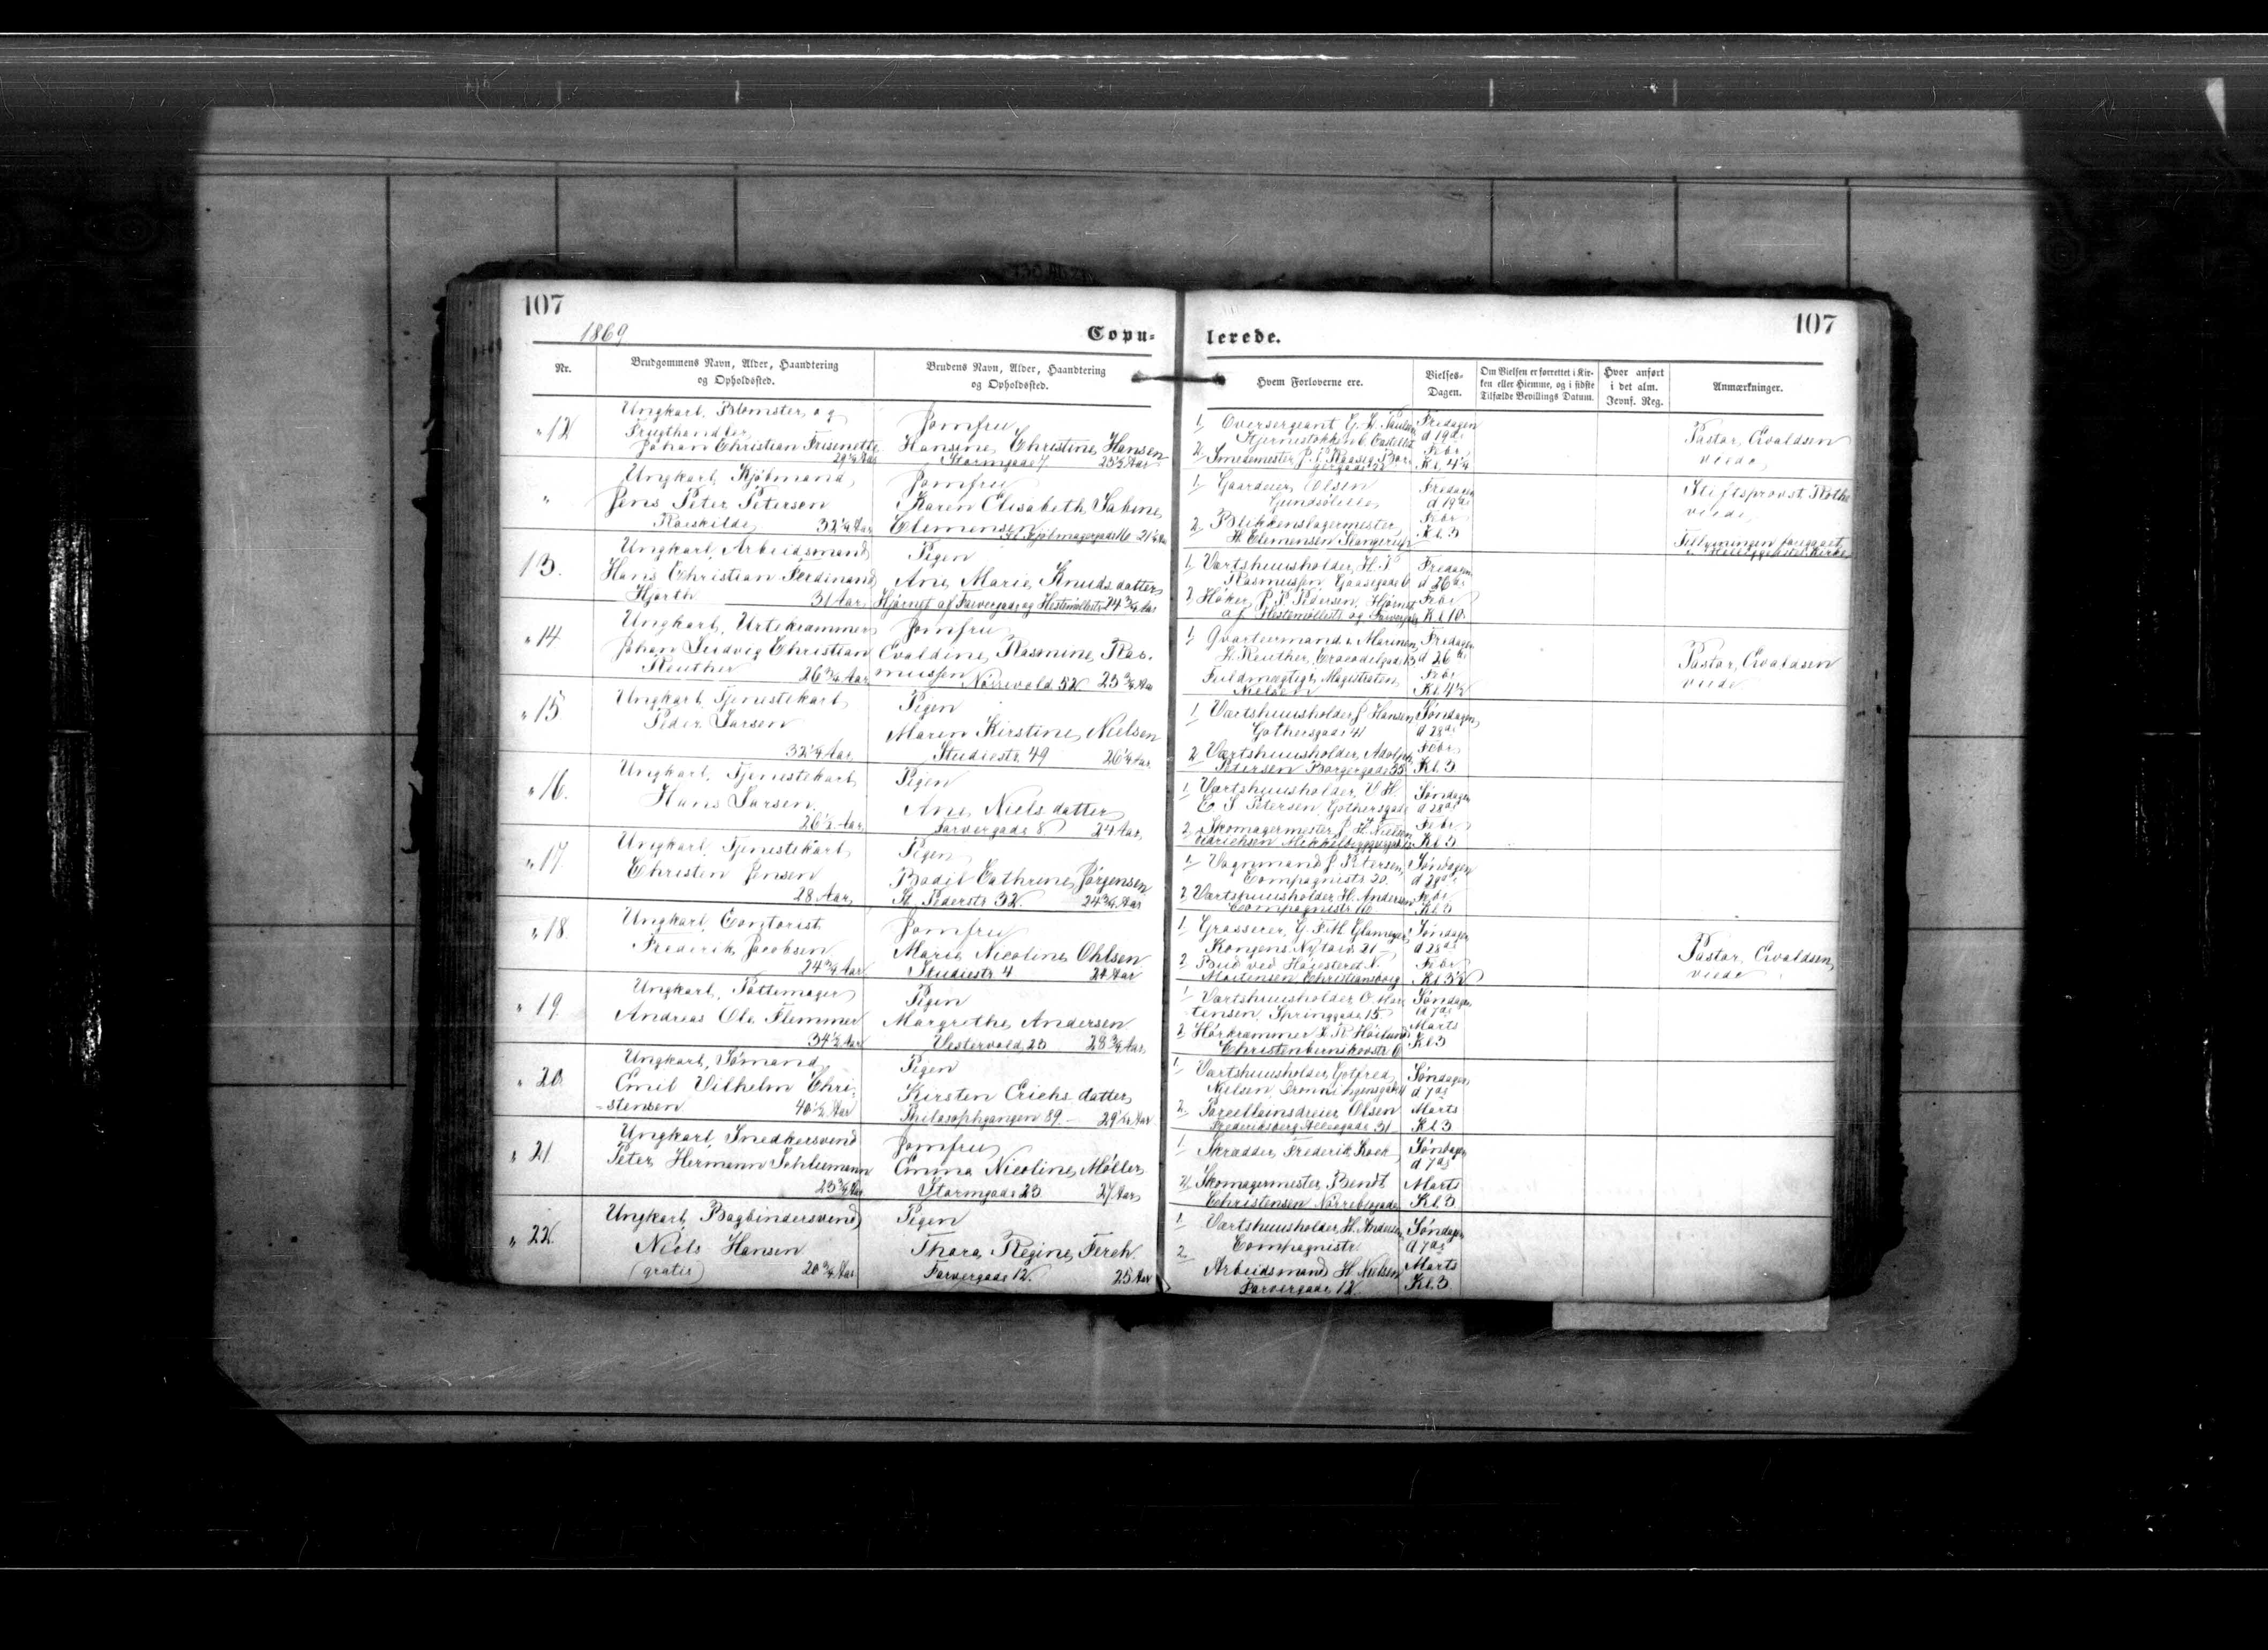 107
1869
Copu-
Nr.
Brudgommens Navn, Alder, Haandtering
og Opholdssted.
Brudens Navn, Alder, Haandtering
og Opholdssted.
"12
Ungkarl, Blomster og
Frugthandler,
Johan Christian Frisenette
29 1/4 Aar
Jomfru
Hansine Christine Hansen
Stormgade 7 25 1/2 Aar
"
Ungkarl, Kjøbmand,
Jens Peter Peterson
Roeskilde, 32 1/4 Aar
Jomfru
Karen Elisabeth Sabine
Clemensen
Kjøbmagergade 16 21 1/4 Aar
13.
Ungkarl, Arbeidsmand
Hans Christian Ferdinand
Hjorth 31 Aar
Pigen
Ane Marie Knudsdatter
Hjørnet af Farvergade og Hestemøllestr 24 3/4 Aar
"14
Ungkarl, Urtekrammer
Johan Ludvig Christian
Reuther 26 3/4 Aar
Jomfru
Evaldine Rasmine Ras-
mussen
Nørrevold 52 25 3/4 Aar
"15
Ungkarl, Tjenestekarl
Peder Larsen
32 1/4 Aar
Pigen
Maren Kirstine Nielsen
Studiestr. 49 26 1/4 Aar
"16.
Ungkarl, Tjenestekarl
Hans Larsen
26 1/2 Aar
Pigen
Ane Nielsdatter
Farvergade 8 24 Aar
"17.
Ungkarl, Tjenestekarl
Christen Jensen
28 Aar
Pigen
Bodil Cathrine Jørgensen
St. Pederstr. 32 24 3/4 Aar
"18.
Ungkarl, Contorist
Frederik Jacobsen
24 3/4 Aar
Jomfru
Marie Nicoline Ohlsen
Studiestr 4 Aar
"19.
Ungkarl, Pottemager
Andreas Ole Flemmer
34 1/2 Aar
Pigen
Margrethe Andersen
Vestervold 23 28 3/4 Aar
"20
Ungkarl, Sømand,
Emil Vilhelm Chri-
-stensen 40 1/2 Aar
Pigen
Kirsten Erichsdatter
Philosophgangen 89 29 1/4 Aar
"21.
Ungkarl, Snedkersvend
Peter Hermann Schliemann
23 3/4 Aar
Jomfru
Emma Nicoline Møller
Stormgade 23 27 Aar
"22.
Ungkarl, Bogbindersvend
Niels Hansen
(gratis) 20 3/4 Aar
Pigen
Thora Regine Ferch
Farvergade 12. 25 Aar
107
lerede.
Hvem Forloverne ere.
Vielses-
Dagen.
Om Vielsen er forrettet i Kir-
ken eller Hjemme, og i sidste
Tilfælde Bevillings Datum.
Hvor anført
i det alm.
Jevnf. Reg.
Anmærkninger.
1 Oversergeant
Stjernestokken Castellet
2 Smedemester
Fredagen
d 19de
Febr
Kl. 4 1/4
Pastor Evaldsen
viede
1 Gaardeier Olsen
Gundsølille
2 Blikkenslagermester
H. Clemensen Slangerup
Fredagen
d 19de
Febr
Kl. 3
Stiftsprovst Rothe
viede
1 Værtshuusholder H. P.
Rasmussen Gaasegade 6
2 Høker P. P. Pedersen Hjørnet
af Hestemøllestr og Farvergade
Fredagen
d 26de
Febr
Kl. 10
1 Qvarteermand v. Marinen
L. Reuther, Crocodilgade 13
Fuldmægtig v. Magistraten
Nielsen
Fredagen
d 26de
Febr
Kl. 4 1/2
Pastor Evaldsen
viede
1 Værtshuusholder J Hansen
Gothersgade 41
2 Værtshuusholder Adolph
Petersen Borgergade 35
Søndagen
d 28de
Febr
Kl. 3
1 Værtshuusholder V. H.
E. S Petersen Gothersgade
2 Skomagermester J H Nielsen
Mikkelbryggersgade
Søndagen
d 28de
Febr
Kl. 3
1 Vognmand J Petersen
Compagnistr 20.
2 Værtshuusholder H. Andersen
Compagnistr 16
Søndagen
d 28de
Febr
Kl. 3
1 Grosserer
Kongens Nytorv 21
2 Bud ved Høiesteret N.
Mortensen Christiansborg
Søndagen
d 28de
Febr
Kl 3 1/2
Pastor Evaldsen
viede
1 Værtshuusholder O. Mor-
tensen, Springgade 15
2 Hørkrammer
Christenbernikovstr 6
Søndagen
d 7de
Marts
Kl 3
1 Værtshuusholder Gotfred
Nielsen Dronningensgade
2 Porcellainsdreier Olsen
Frederiksberg Alleegade 31
Søndagen
d 7de
Marts
Kl. 3
1 Skrædder Frederik Koch
2 Skomagermester Bendt
Christensen Nørrebrogade
Søndagen
d 7de
Marts
Kl. 3
1 Værtshuusholder H. Andersen
Compagnistr
2 Arbeidsmand H. Nielsen
Farvergade 12
Søndagen
d 7de
Marts
Kl. 3